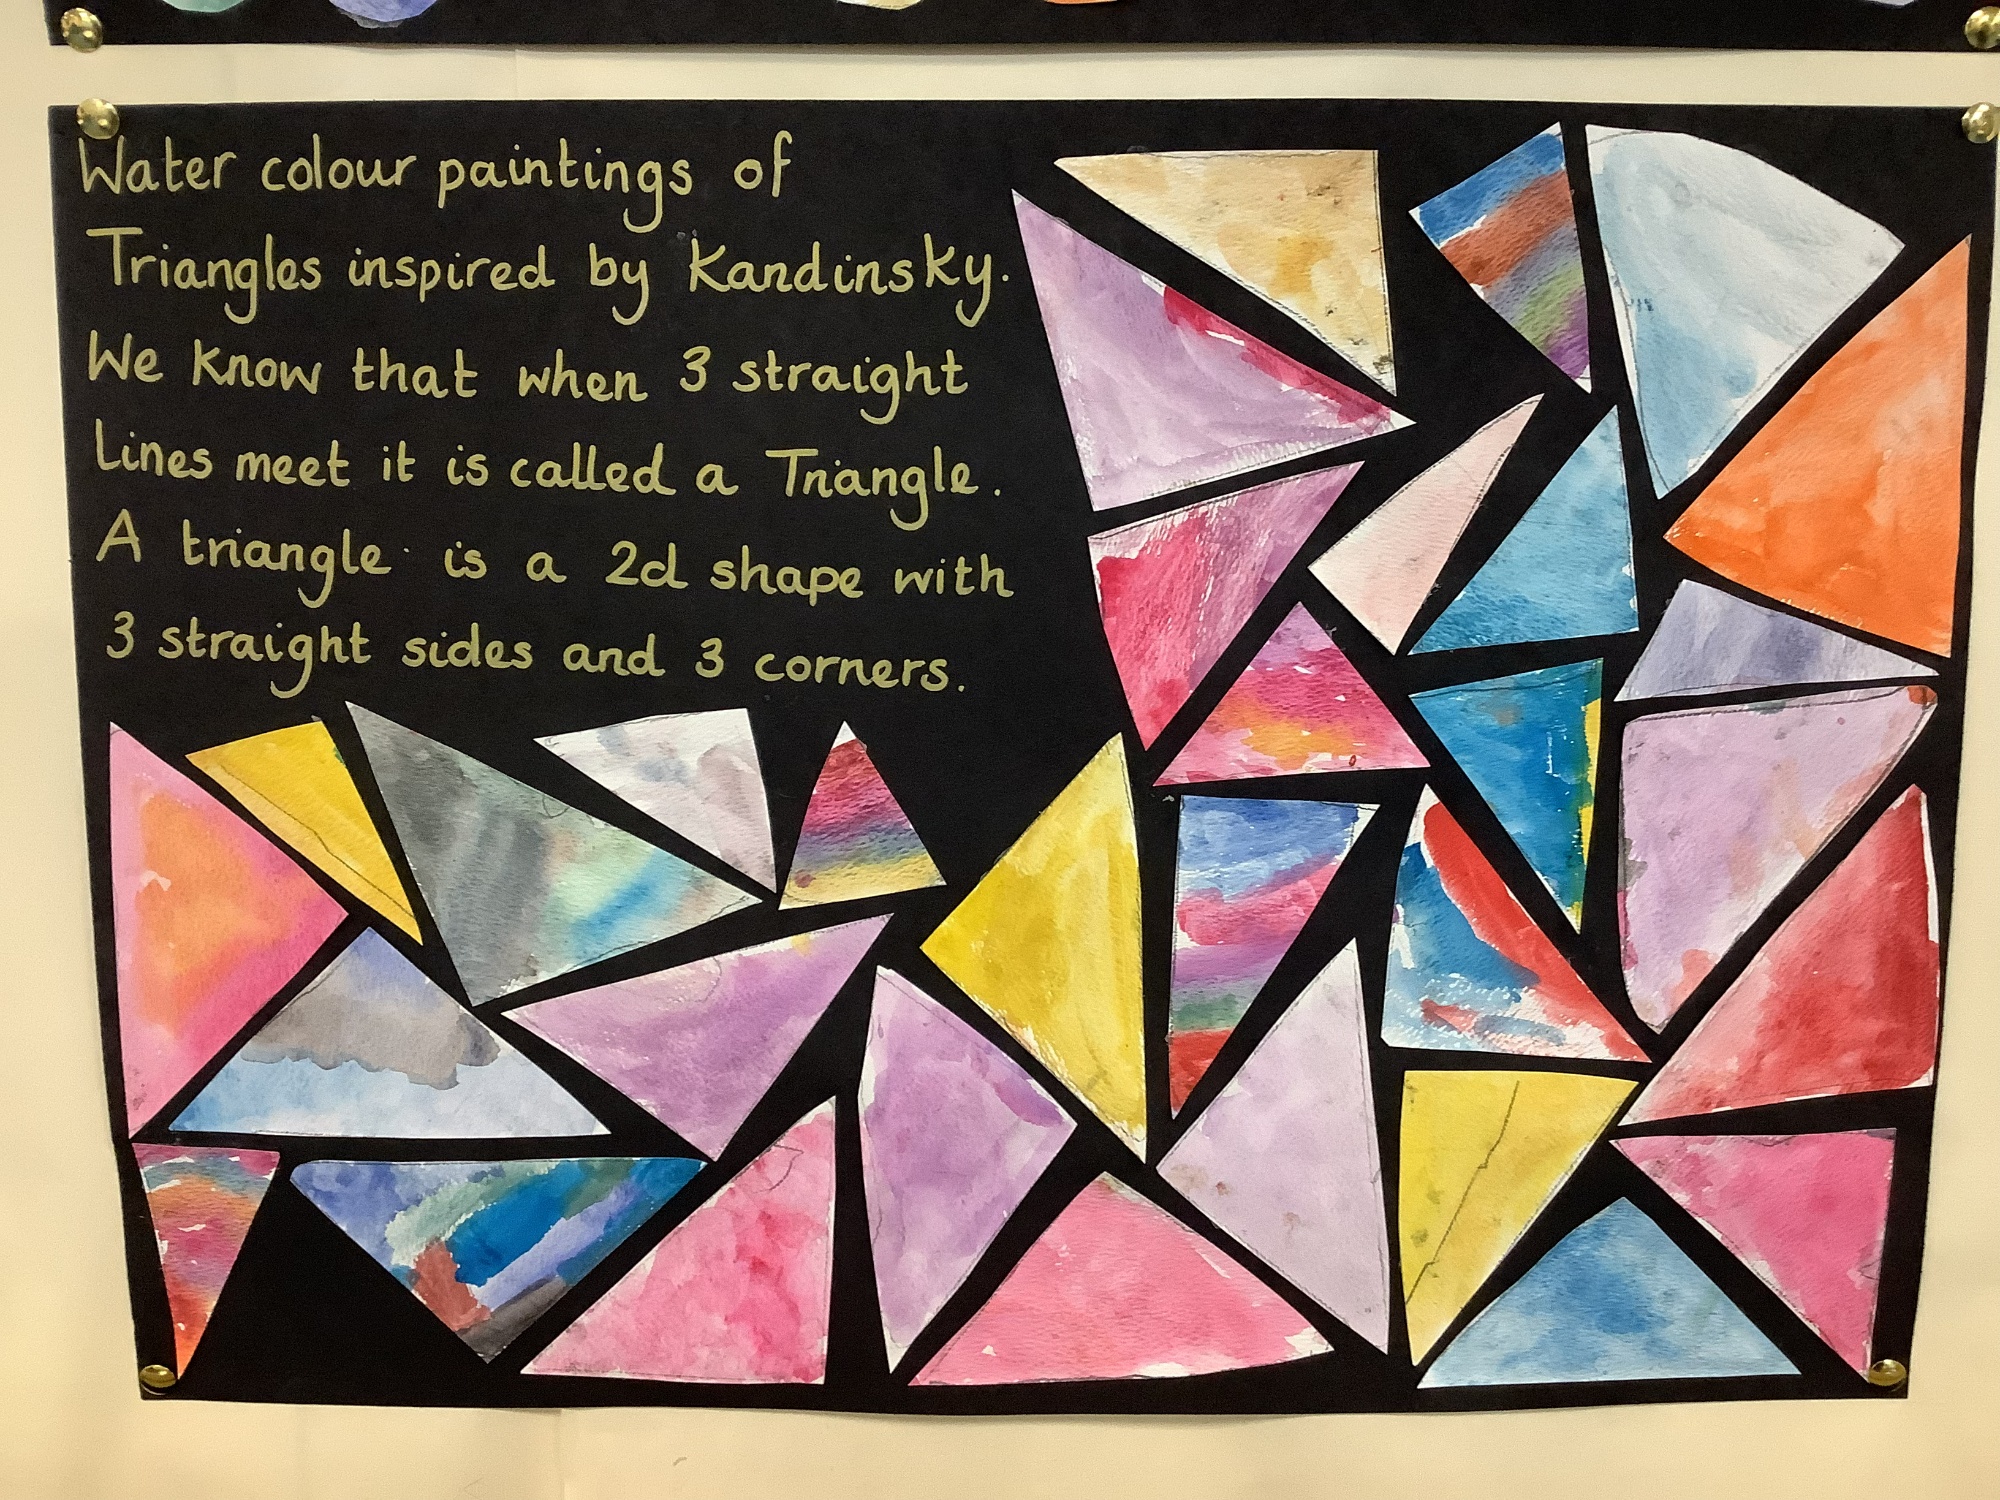 Water colour paintings of
Triangles inspired by Kandinsky.
We know that when 3 straight
Lines meet it is called a Triangle.
A triangle is a 2d shape with
3 straight sides and 3 corners.